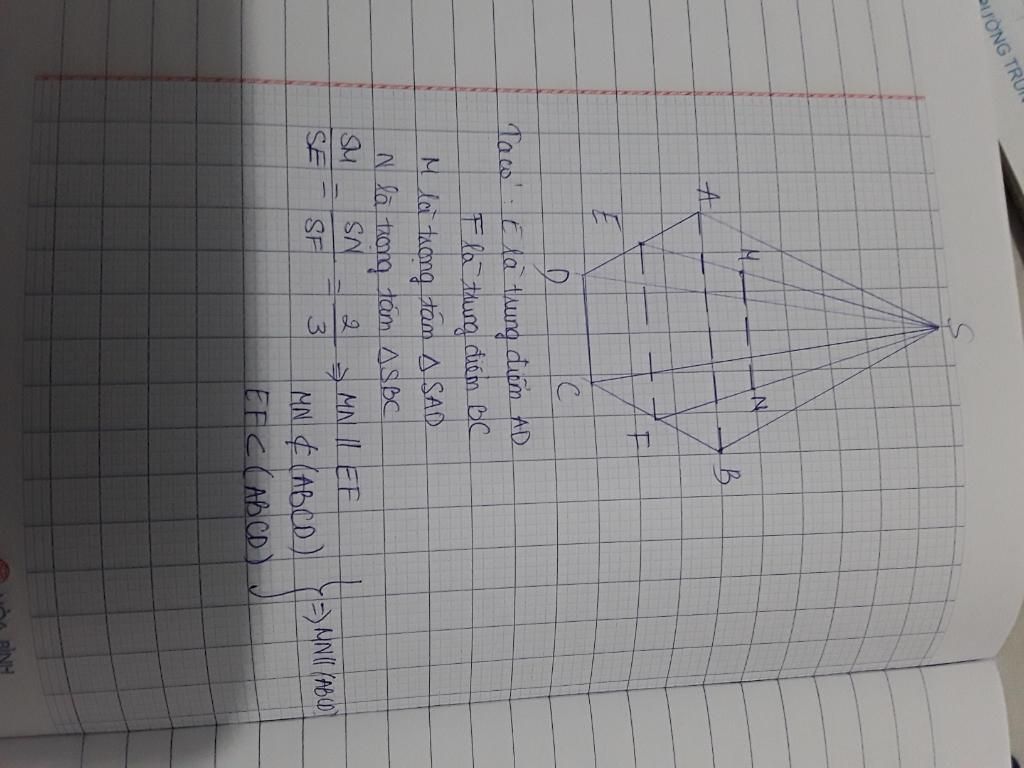 S
M
N
A
B
E
F
D
C
Ta có: E là trung điểm AD
F là trung điểm BC
M là trọng tâm Δ SAD
N là trọng tâm Δ SBC
SM/SE = SN/SF = 2/3 ⇒ MN // EF
MN ⊄ (ABCD) } ⇒ MN // (ABCD)
EF ⊂ (ABCD)
HÒA BÌNH